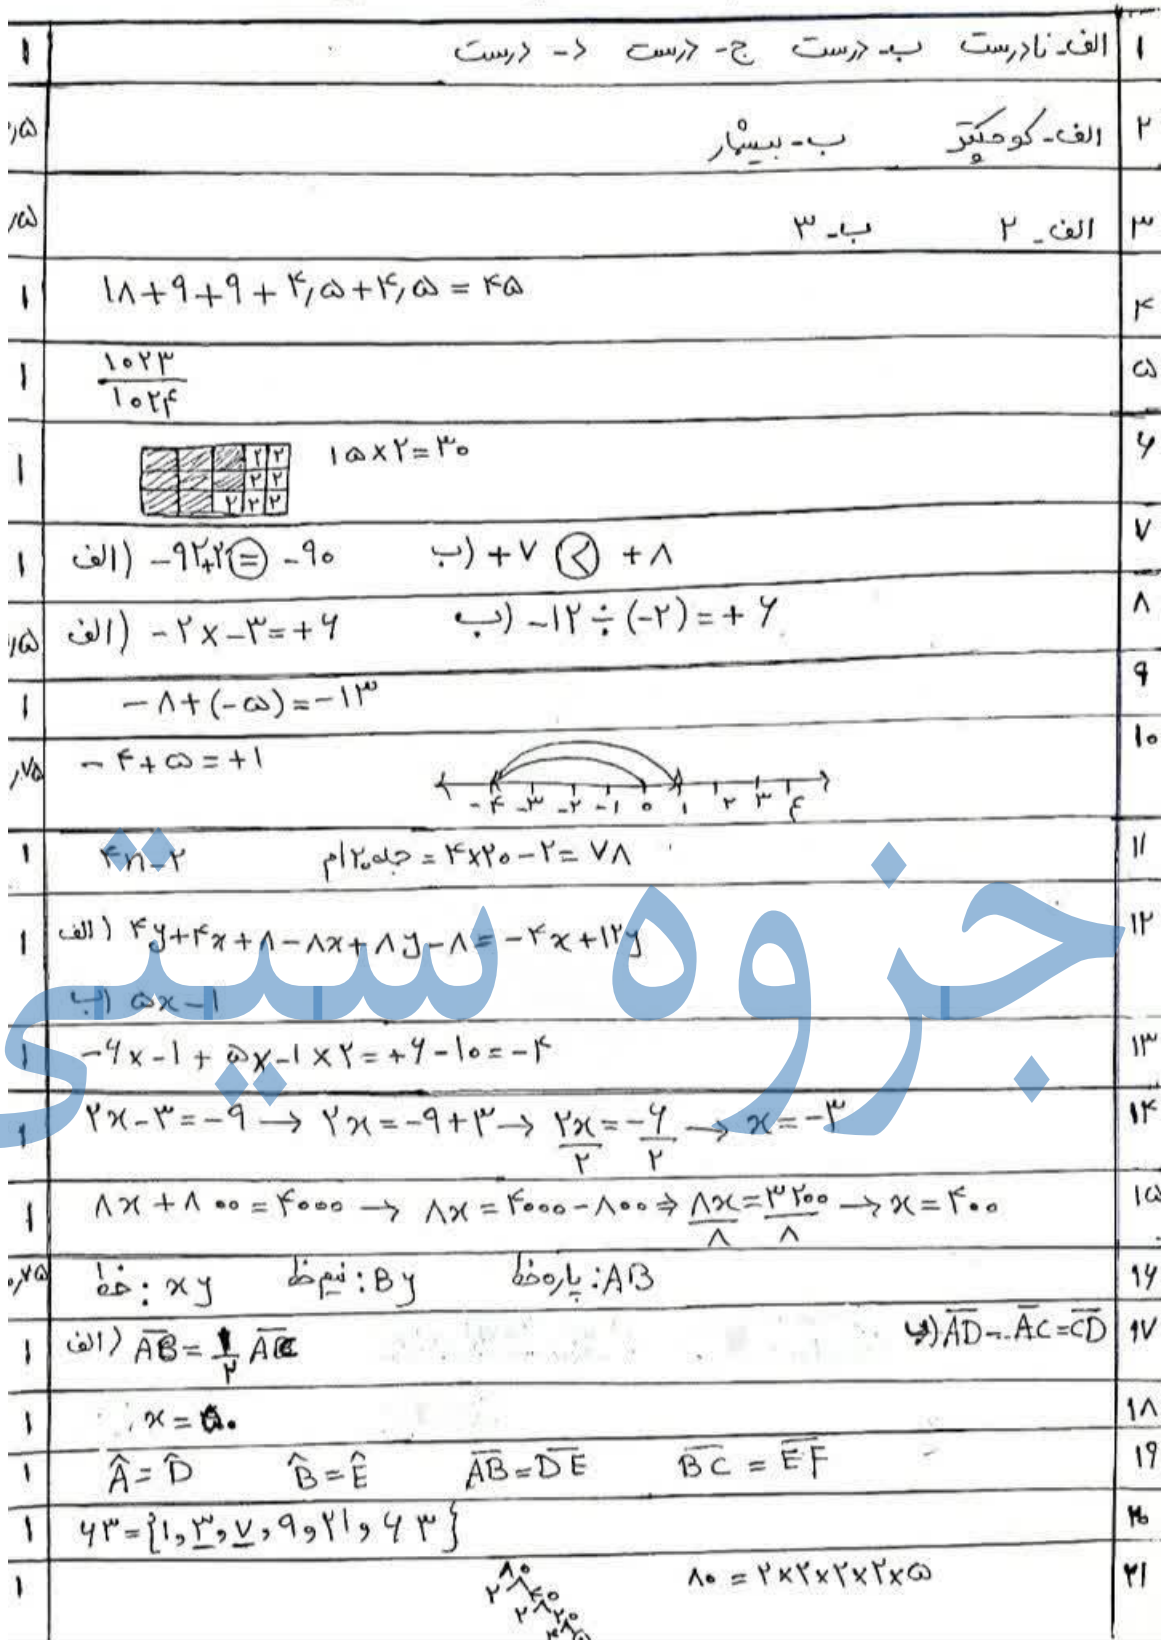 ۱ الف- نادرست ب- درست ج- درست د- درست ۱
۲ الف- کوچکتر ب- بیشمار ٫۵
۳ الف- ۲ ب- ۳ ٫۵
۴ ۱۸+۹+۹+۴٫۵+۴٫۵=۴۵ ۱
۵ ۱۰۲۳/۱۰۲۴ ۱
۶ ۱۵×۲=۳۰ ۱
۲ ۲
۲ ۲
۲ ۲ ۲
۷ الف) -۹۲+۲ = -۹۰ ب) +۷ < +۸ ۱
۸ الف) -۲×-۳=+۶ ب) -۱۲÷(-۲)=+۶ ٫۵
۹ -۸+(-۵)=-۱۳ ۱
۱۰ -۴+۵=+۱ ٫۷۵
-۴ -۳ -۲ -۱ ۰ ۱ ۲ ۳ ۴
۱۱ ۴n-۲ جمله ۲۰ام = ۴×۲۰-۲=۷۸ ۱
۱۲ الف) ۴y+۴x+۸-۸x+۸y-۸=-۴x+۱۲y ۱
ب) ۵x-۱
جزوه سیتی
۱۳ -۶×-۱+۵×-۱×۲=+۶-۱۰=-۴ ۱
۱۴ ۲x-۳=-۹ → ۲x=-۹+۳ → ۲x/۲=-۶/۲ → x=-۳ ۱
۱۵ ۸x+۸۰۰=۴۰۰۰ → ۸x=۴۰۰۰-۸۰۰ ⇒ ۸x/۸=۳۲۰۰/۸ → x=۴۰۰ ۱
۱۶ خط: xy نیم خط: By پاره خط: AB ۰٫۷۵
۱۷ الف) AB=۱/۲ AC ب) AD-AC=CD ۱
۱۸ x= ۱
۱۹ Â=D̂ B̂=Ê AB=DE BC=EF ۱
۲۰ ۶۳={۱,۳,۷,۹,۲۱,۶۳} ۱
۲۱ ۸۰=۲×۲×۲×۲×۵ ۱
۸۰
۲ ۴۰
۲ ۲۰